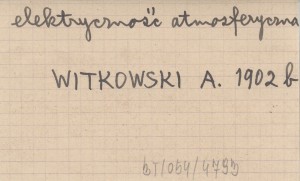 elektryczność atmosferyczna
WITKOWSKI A. 1902 b
ST/054/4793